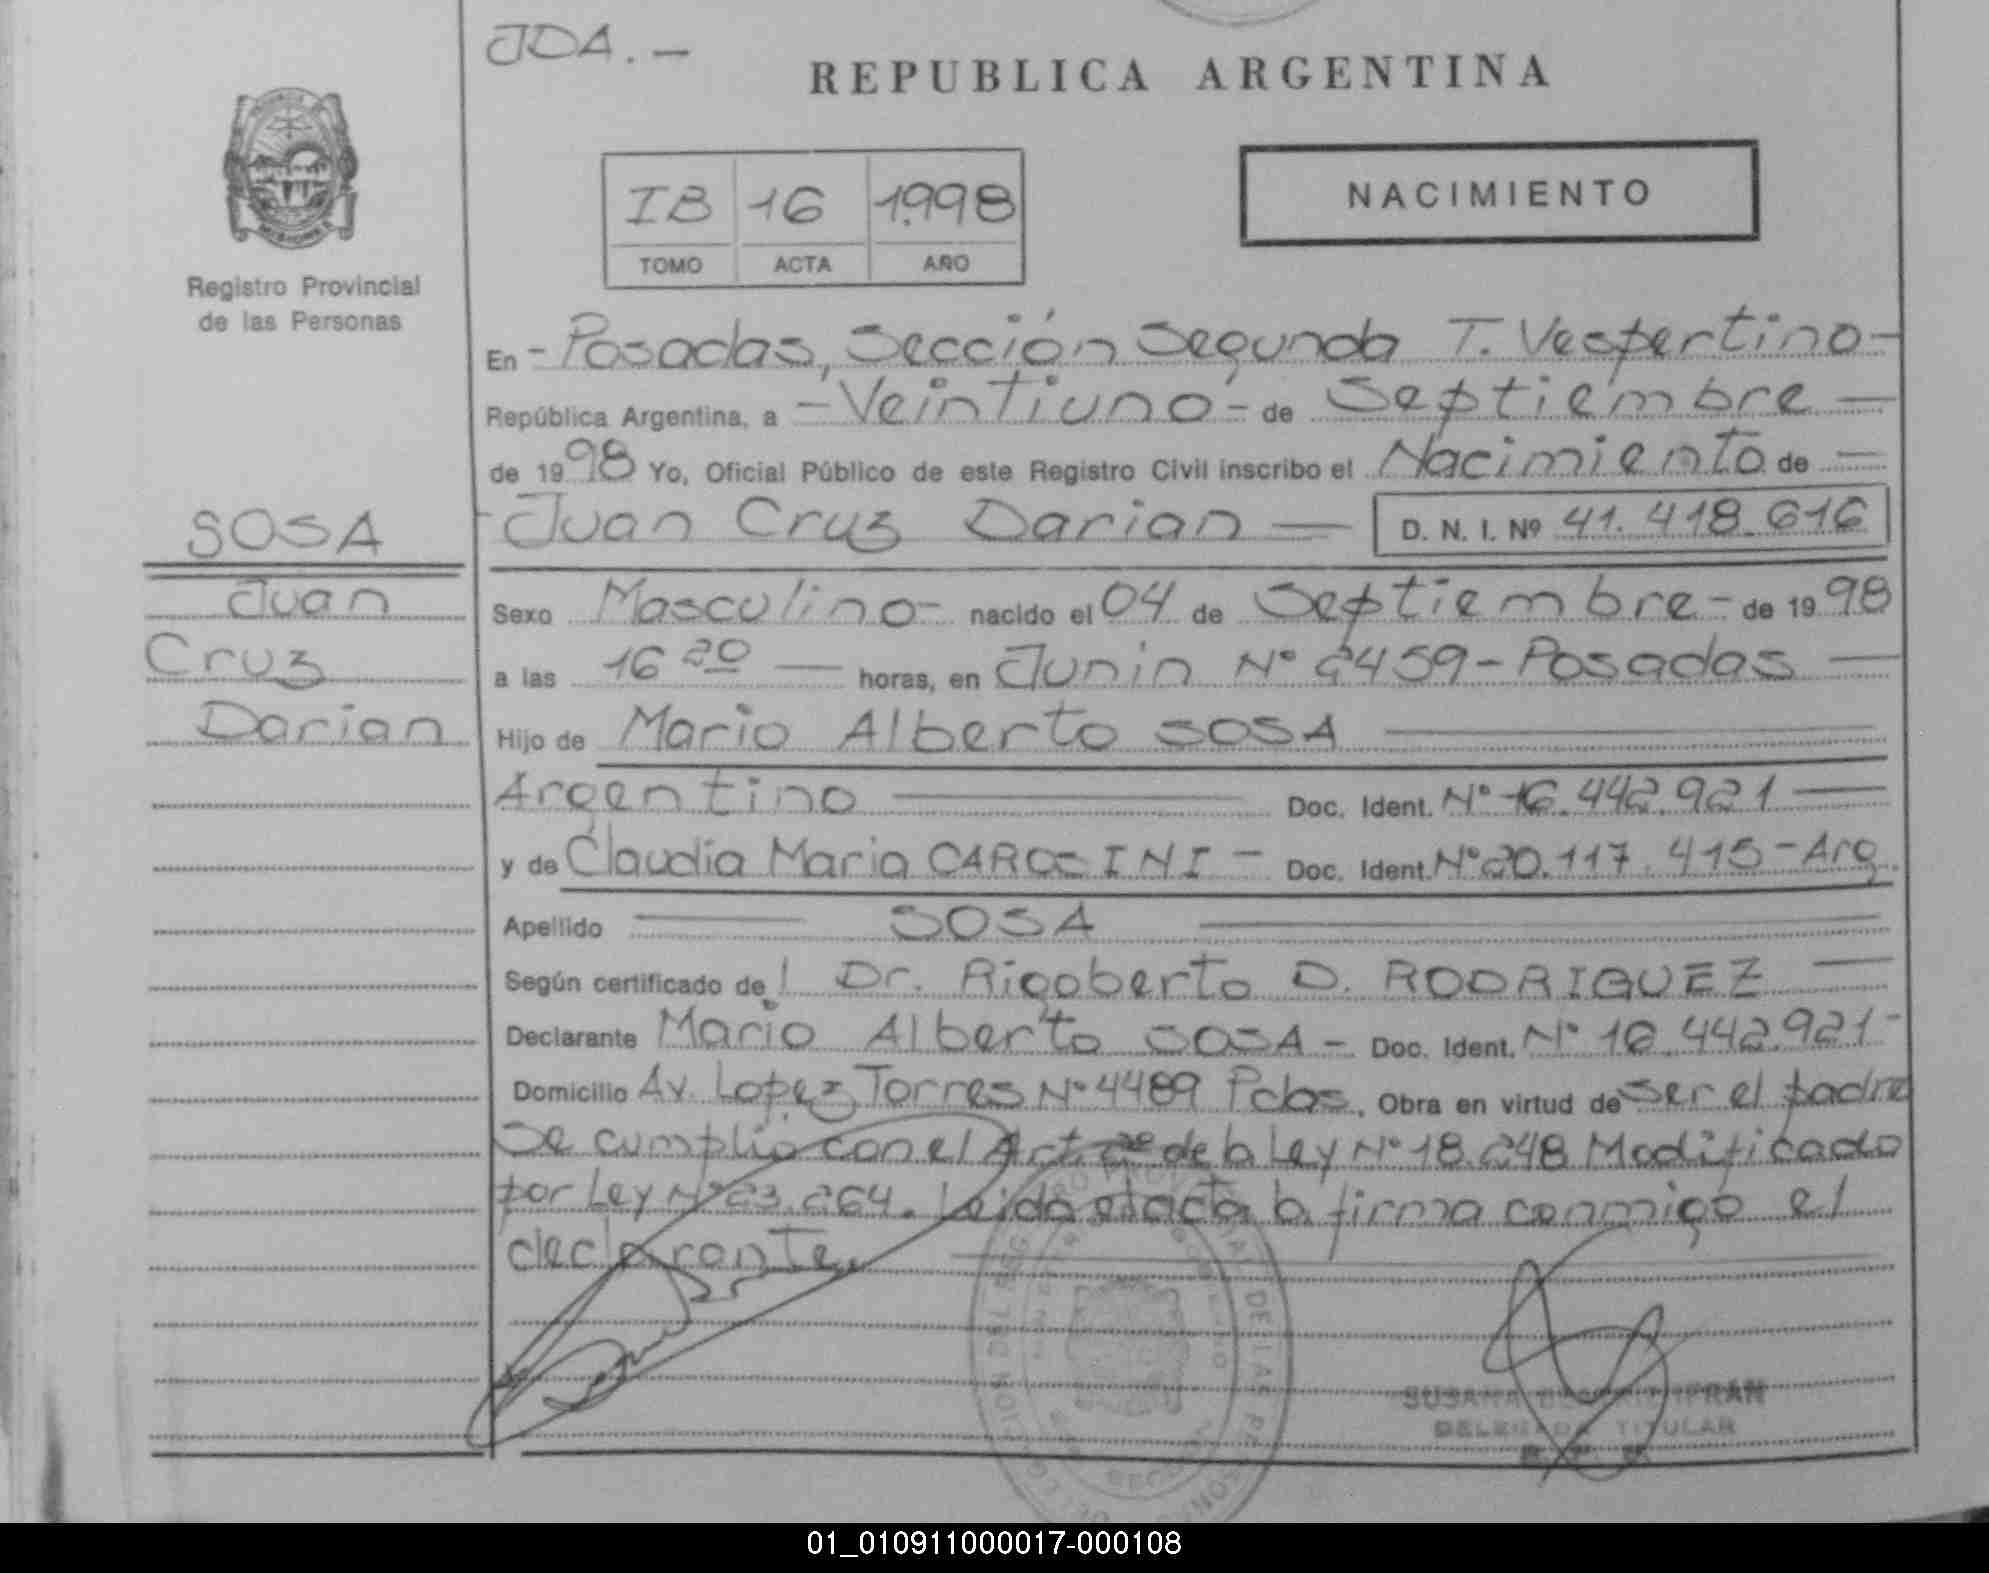 JDA.-
REPUBLICA ARGENTINA
IB 16 1998
TOMO ACTA AÑO
NACIMIENTO
Registro Provincial
de las Personas
En - Posadas, Sección Segunda T. Vespertino -
República Argentina, a - Veintiuno - de Septiembre -
de 1998 Yo, Oficial Público de este Registro Civil inscribo el Nacimiento de -
- Juan Cruz Darian - D. N. I. Nº 41.418.616
SOSA
Juan
Cruz
Darian
Sexo Masculino - nacido el 04 de Septiembre - de 1998
a las 16 20 - horas, en Junin Nº 2459 - Posadas -
Hijo de Mario Alberto SOSA
Argentino Doc. Ident. Nº 16.442.921
y de Claudia Maria - Doc. Ident. Nº 20.117.415 - Arg.
Apellido SOSA
Según certificado de Dr. Rigoberto D. RODRIGUEZ
Declarante Mario Alberto SOSA - Doc. Ident. Nº 16.442.921 -
Domicilio Av. Lopez Torres Nº 4489 Pdas. Obra en virtud de ser el padre
Se cumplio con el Art. 2º de la Ley Nº 18.248 Modificado
por Ley Nº 23.264. Leida el acta la firma conmigo el
declarante.
SUSANA IFRAN
DELEGADA TITULAR
01_010911000017-000108